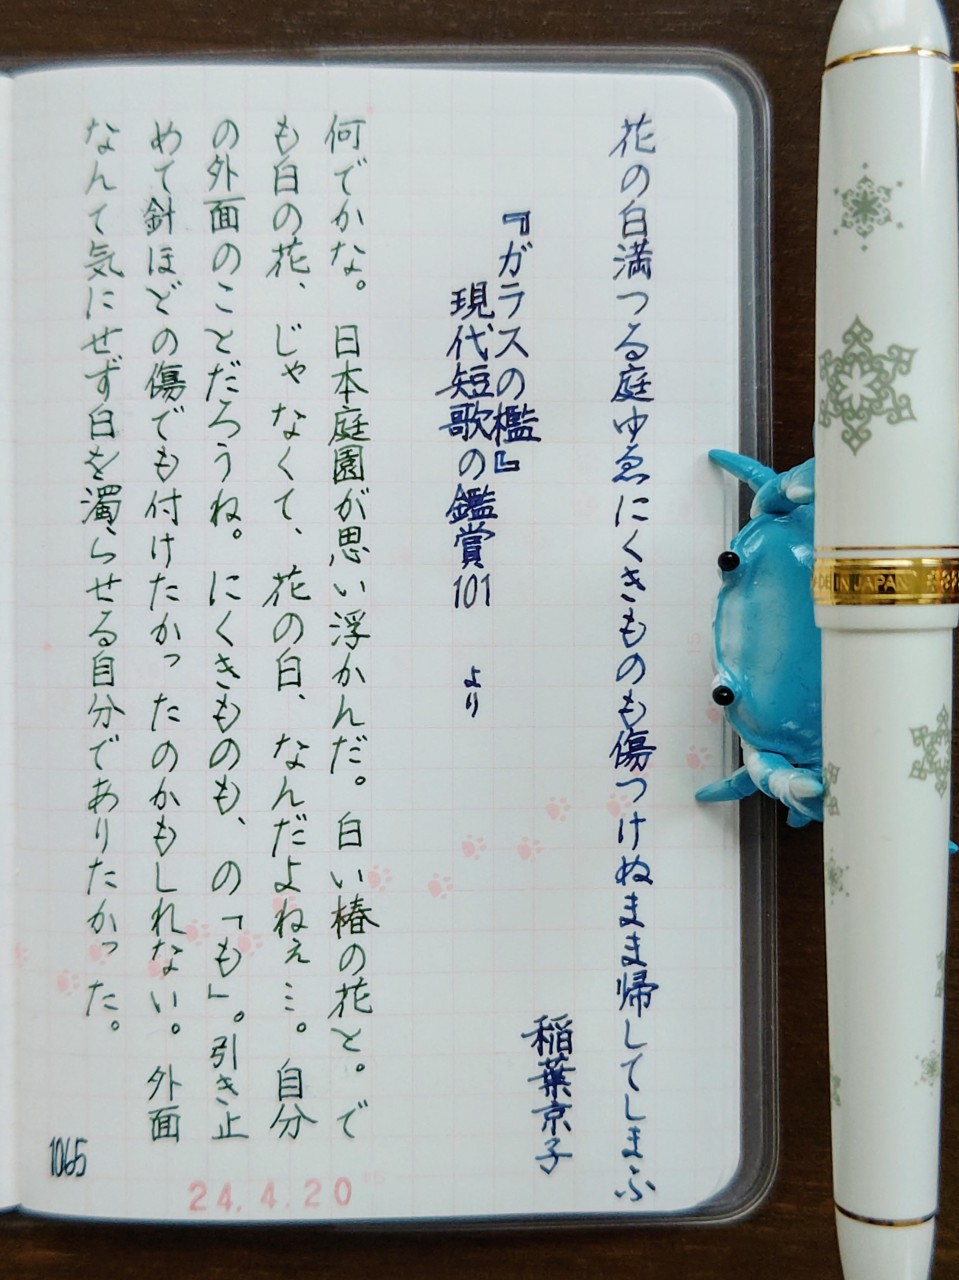 花の白満つる庭ゆゑにくきものも傷つけぬまま帰してしまふ
稲葉京子
『ガラスの檻』
現代短歌の鑑賞101 より
何でかな。日本庭園が思い浮かんだ。白い椿の花と。で
も白の花、じゃなくて、花の白、なんだよねぇ…。自分
の外面のことだろうね。にくきものも、の「も」。引き止
めて針ほどの傷でも付けたかったのかもしれない。外面
なんて気にせず白を濁らせる自分でありたかった。
1065
24.4.20
DE IN JAPAN